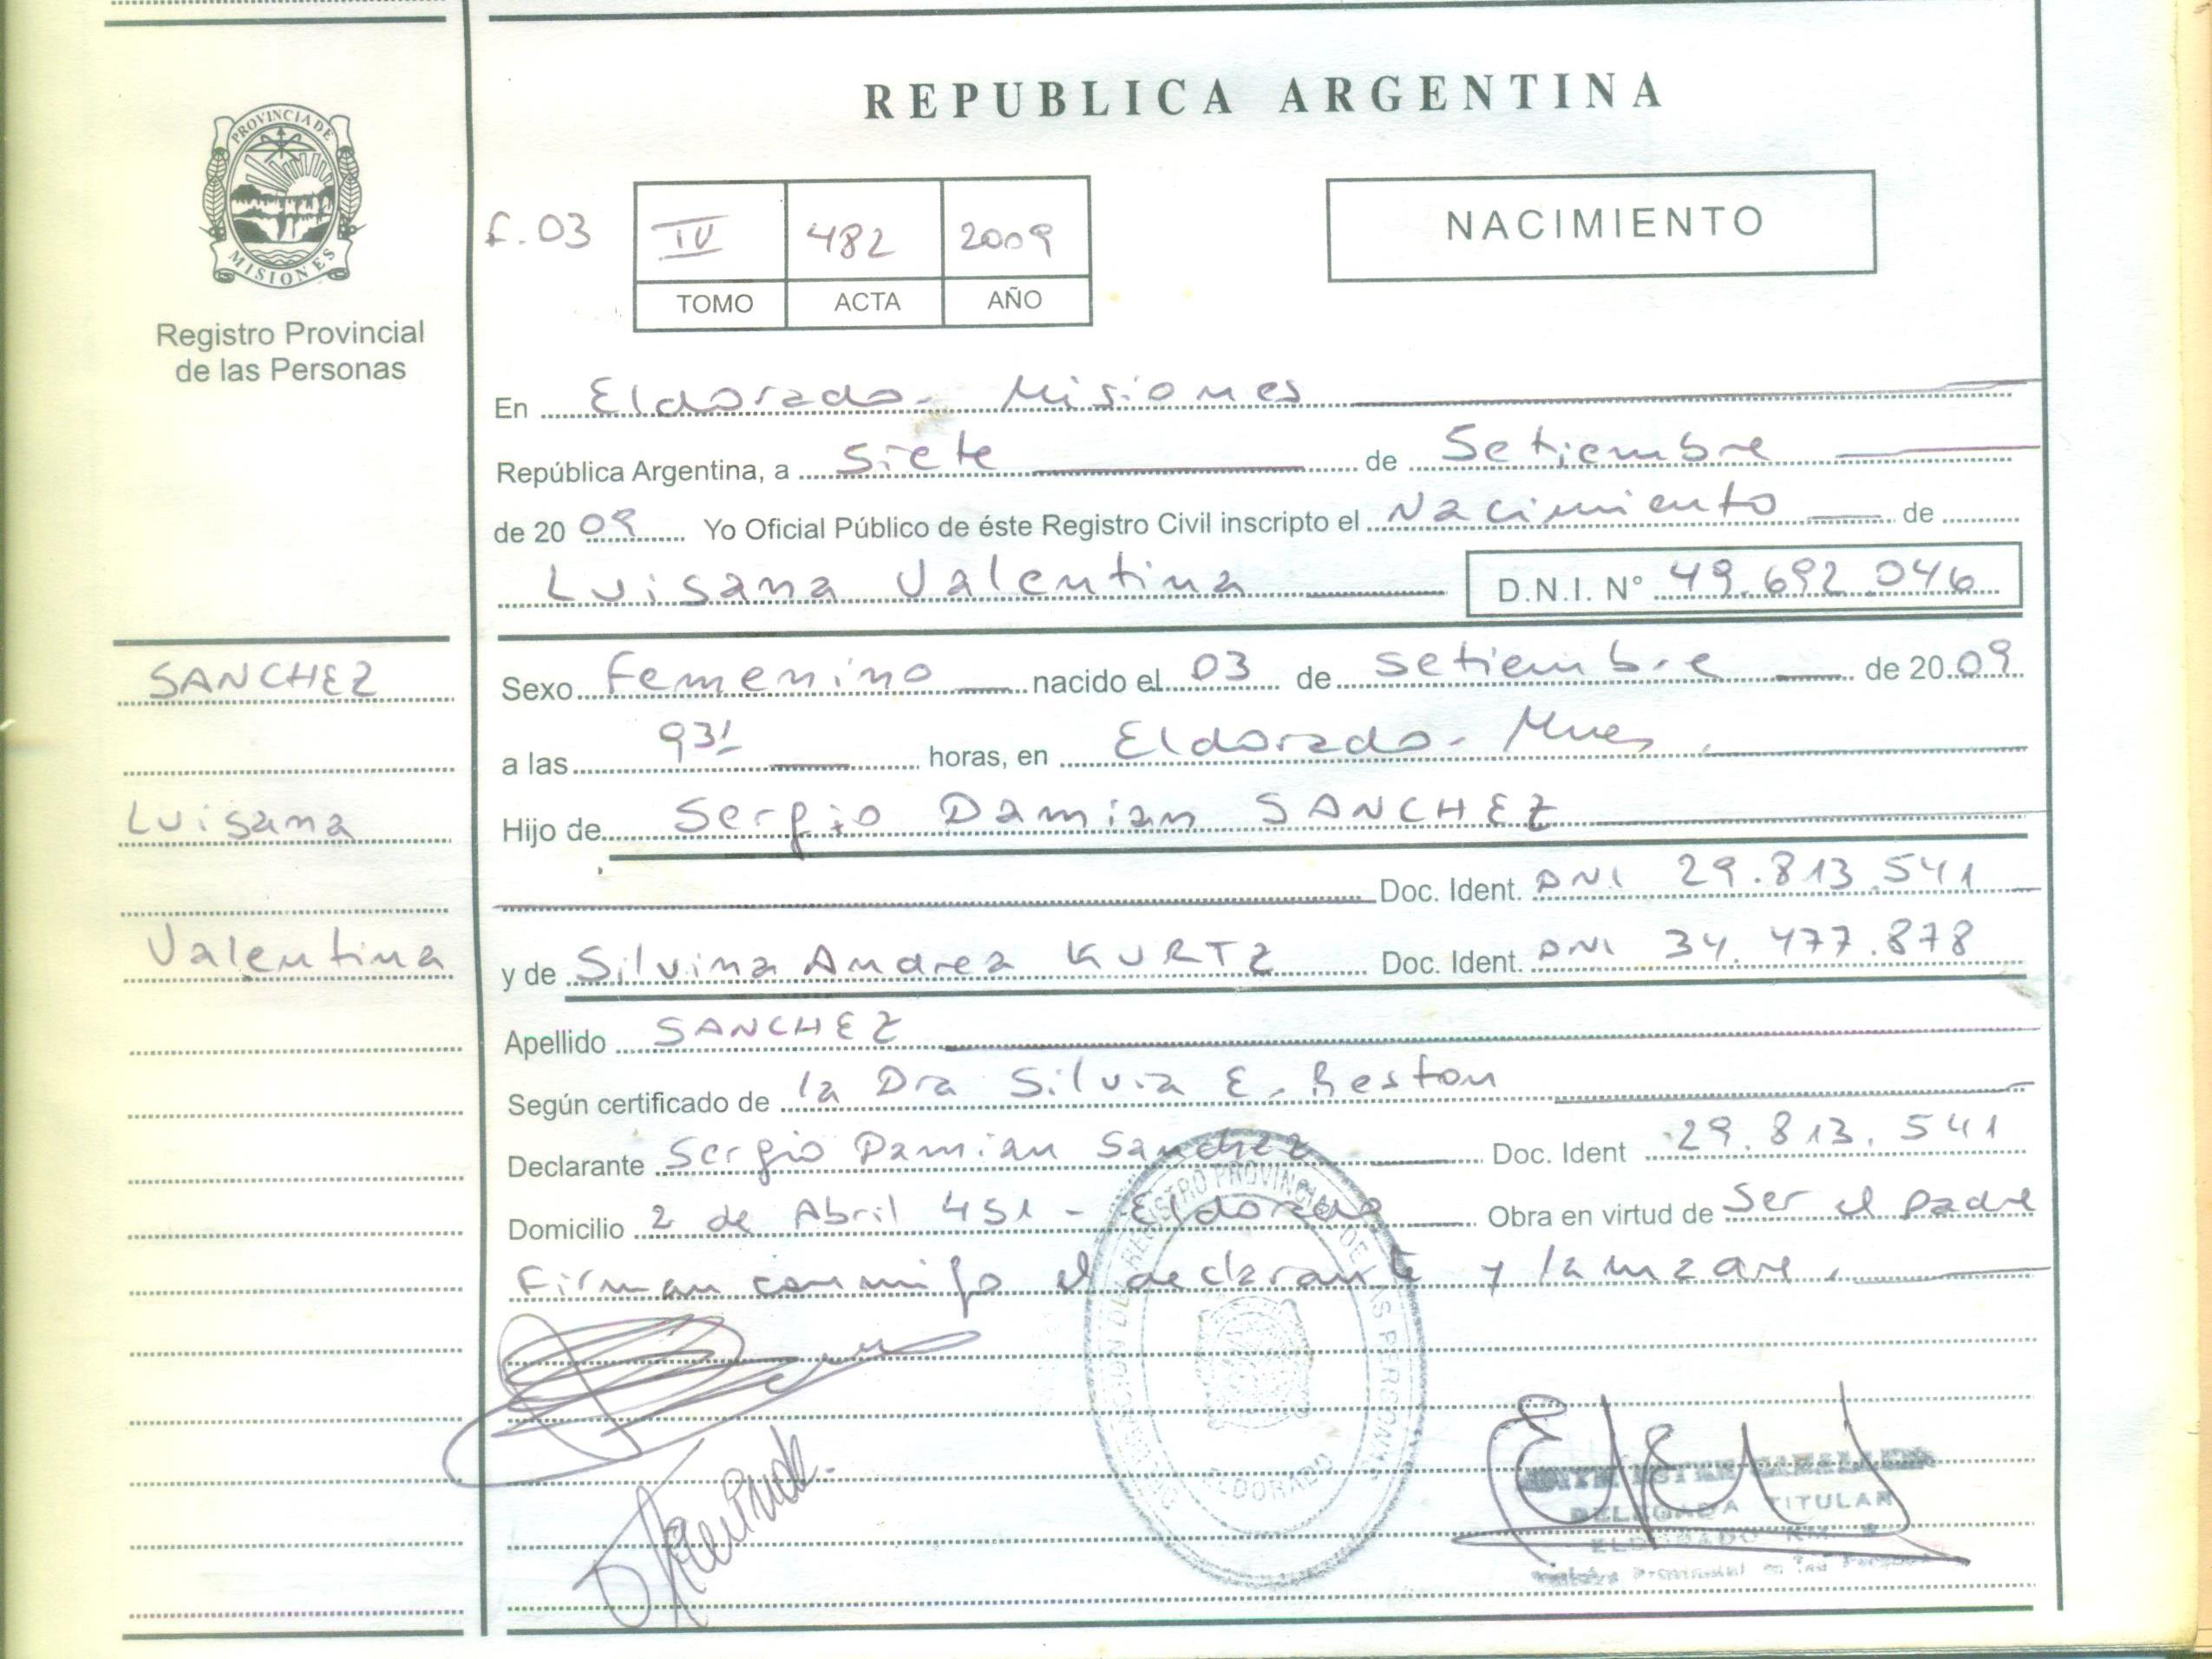 PROVINCIA DE
MISIONES
Registro Provincial
de las Personas
REPUBLICA ARGENTINA
f. 03
IV 482 2009
TOMO ACTA AÑO
NACIMIENTO
En Eldorado - Misiones
República Argentina, a Siete de Setiembre
de 20 09 Yo Oficial Público de éste Registro Civil inscripto el Nacimiento de
Luisana Valentina D.N.I. N° 49.692.046
SANCHEZ
Luisana
Valentina
Sexo Femenino nacido el 03 de Setiembre de 20 09
a las 931 horas, en Eldorado - Mnes.
Hijo de Sergio Damian SANCHEZ
Doc. Ident. DNI 29.813.541
y de Silvina Andrea KURTZ Doc. Ident. DNI 34.477.878
Apellido SANCHEZ
Según certificado de la Dra Silvia E. Reston
Declarante Sergio Damian Sanchez Doc. Ident 29.813.541
Domicilio 2 de Abril 451 - Eldorado Obra en virtud de Ser el padre
Firman conmigo el declarante y la madre.
REGISTRO PROVINCIAL DE LAS PERSONAS
ELDORADO
DELEGADA TITULAR
ELDORADO KM.